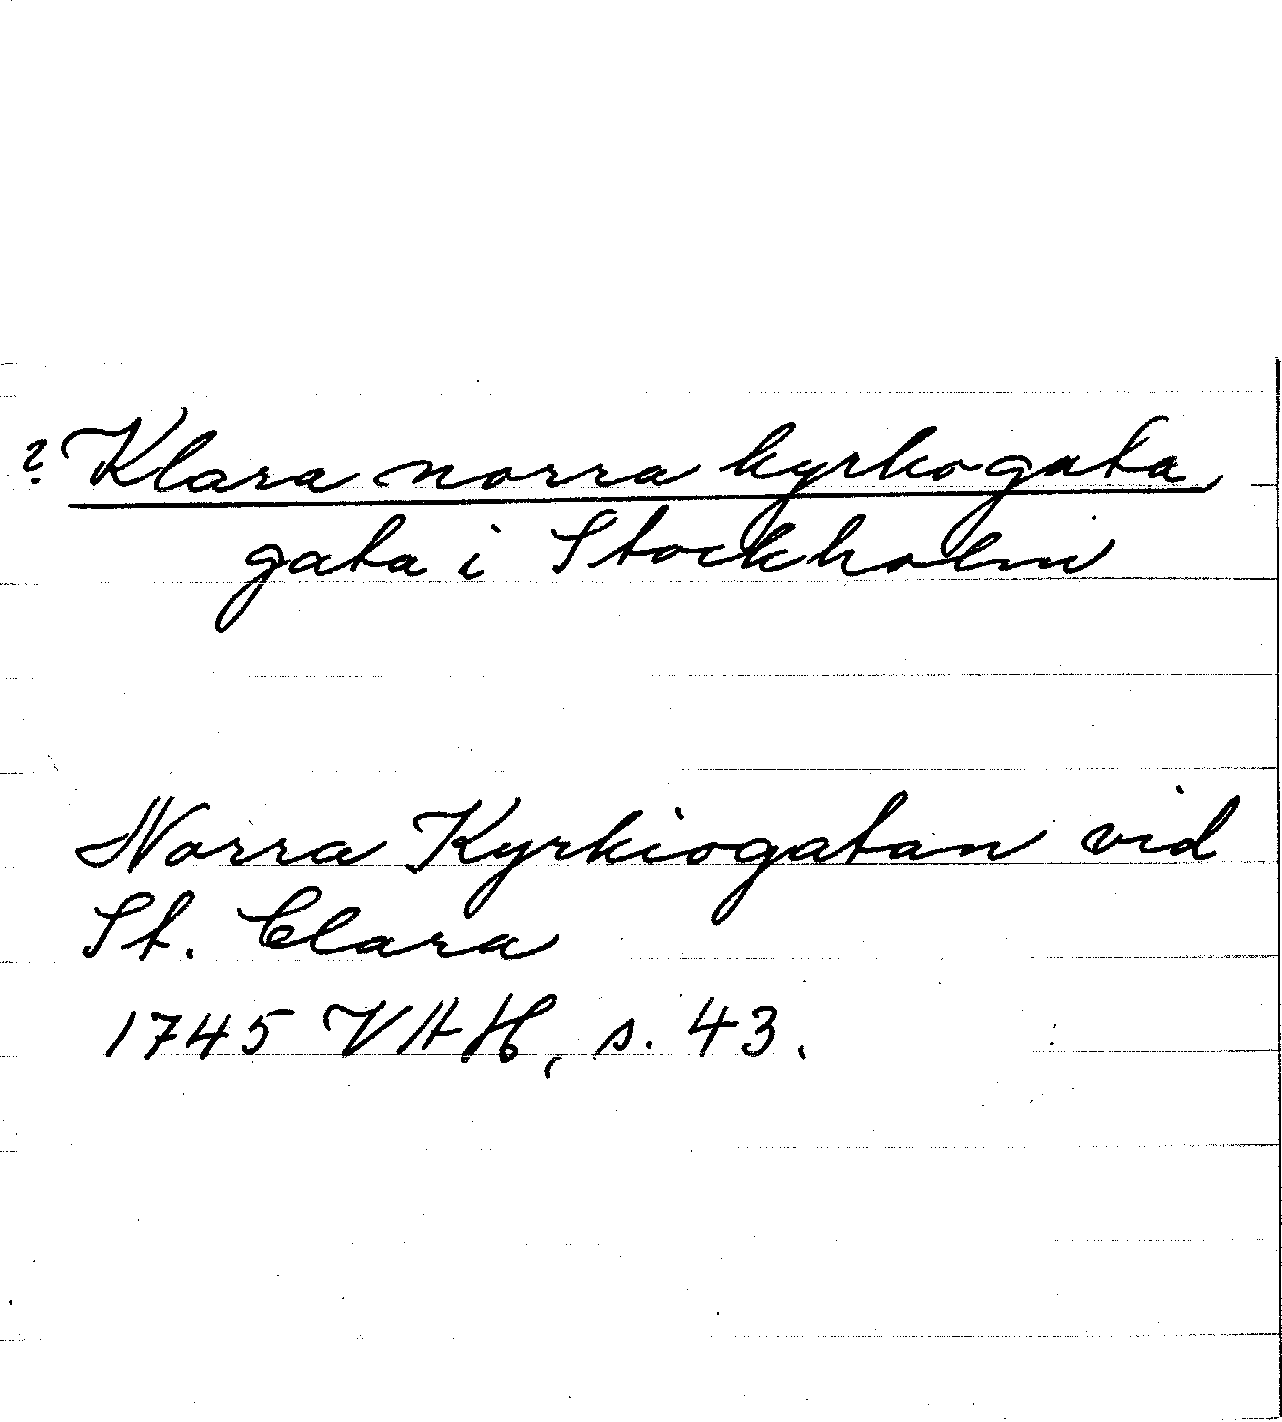 ? Klara norra kyrkogata
gata i Stockholm
Norra Kyrkiogatan vid
St. Clara
1745 VAH, s. 43.